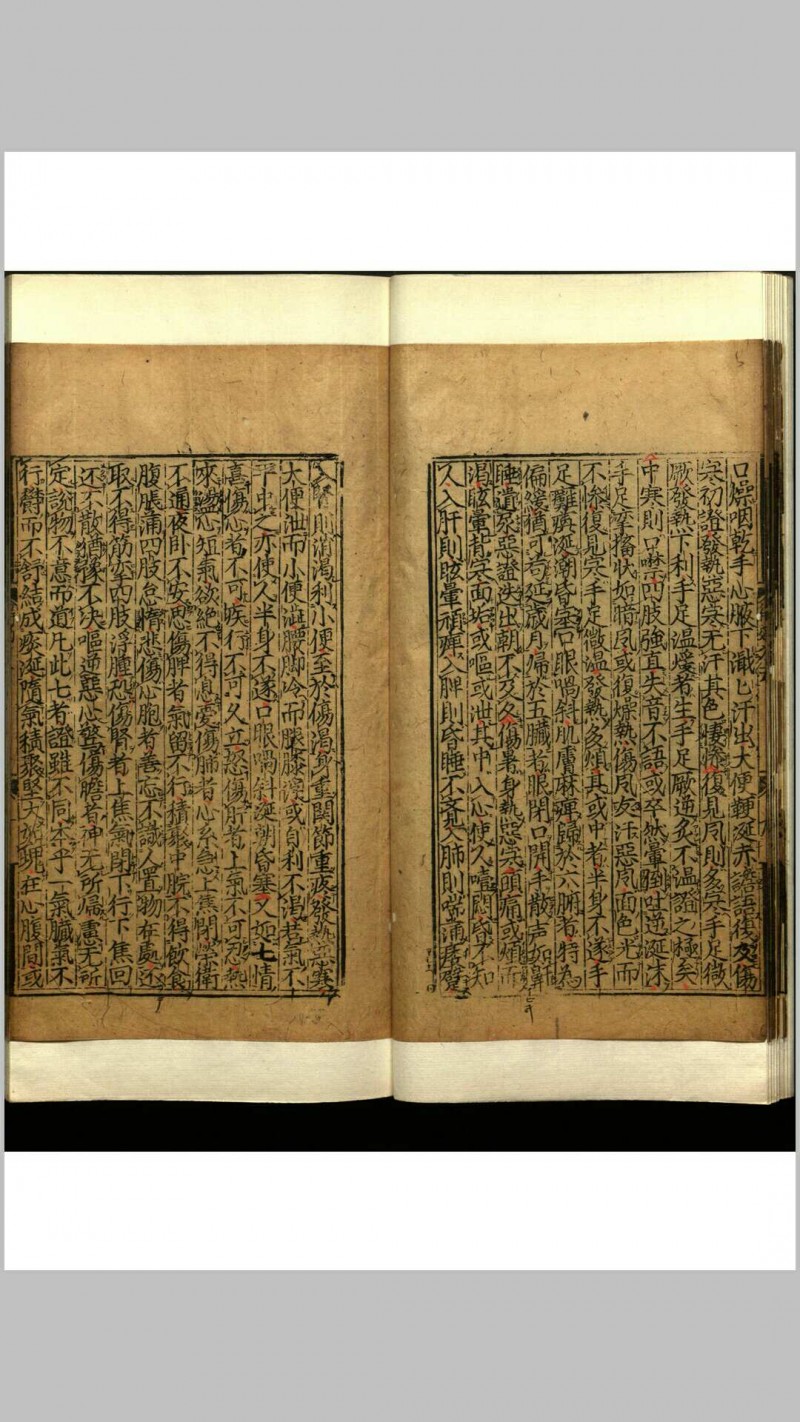 口燥咽乾手心腋下濈匕汗出大便鞕涎赤譫語復友傷
寒初證發熱惡寒无汗其色慘復見風則多寒手足微
厥發熱下利手足温煖者生手足厥逆灸不温證之極矣
中寒則口噤四肢強直失音不語或卒然暈倒吐逆涎沫
手足挛搐状如暗風或復燥熱傷風友汗惡風面色光而
不慘復見寒手足微温發熱多煩其或中者半身不遂手
足癱瘓涎潮昏塞口眼喎斜肌膚麻痺歸於六腑者特為
偏緩猶可苟延歲月歸於五臓者眼閉口開手散声如鼾
睡遺尿惡證迭出朝不及夕傷暑身熱惡寒頭痛或煩而
渴眩暈背寒面垢或嘔或泄其中入心使久噎悶昏不知
人入肝則眩暈頑痺入脾則昏睡不吝入肺則喘滿痿躄
入腎則消渴利小便至於傷濕身重関節重疼發熱惡寒
大便泄而小便澁腰脚冷而腿膝或自利不渴若氣不
平中之亦使久半身不遂口眼喎斜涎潮昏塞又如七情
喜傷心者不可疾行不可久立怒傷肝者上氣不可忍熱
來盪心短氣欲絶不得息憂傷肺者心系急上焦閉榮衛
不通夜卧不安思傷脾者氣留不行積聚中脘不得飲食
腹脹滿四肢怠惰悲傷心胞者善忘不識人置物在處还
取不得筋挛四肢浮腫恐傷腎者上焦氣閉不行下焦回
还不散猶豫不决嘔逆惡心驚傷膽者神无所歸慮无所
定說物不意而道凡此七者證雖不同本乎一氣臓氣不
行鬱而不舒結成痰涎隨氣積聚堅大如塊在心腹間或